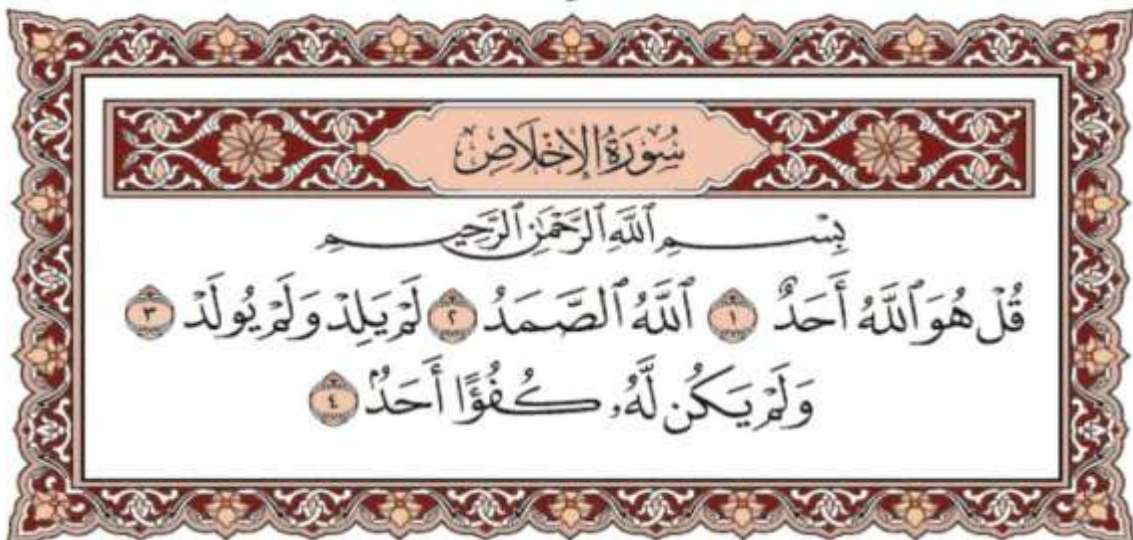 سُورَةُ الإِخْلَاصِ
بِسْمِ ٱللَّهِ ٱلرَّحْمَٰنِ ٱلرَّحِيمِ
قُلْ هُوَ ٱللَّهُ أَحَدٌ ١ ٱللَّهُ ٱلصَّمَدُ ٢ لَمْ يَلِدْ وَلَمْ يُولَدْ ٣
وَلَمْ يَكُن لَّهُۥ كُفُؤًا أَحَدُۢ ٤